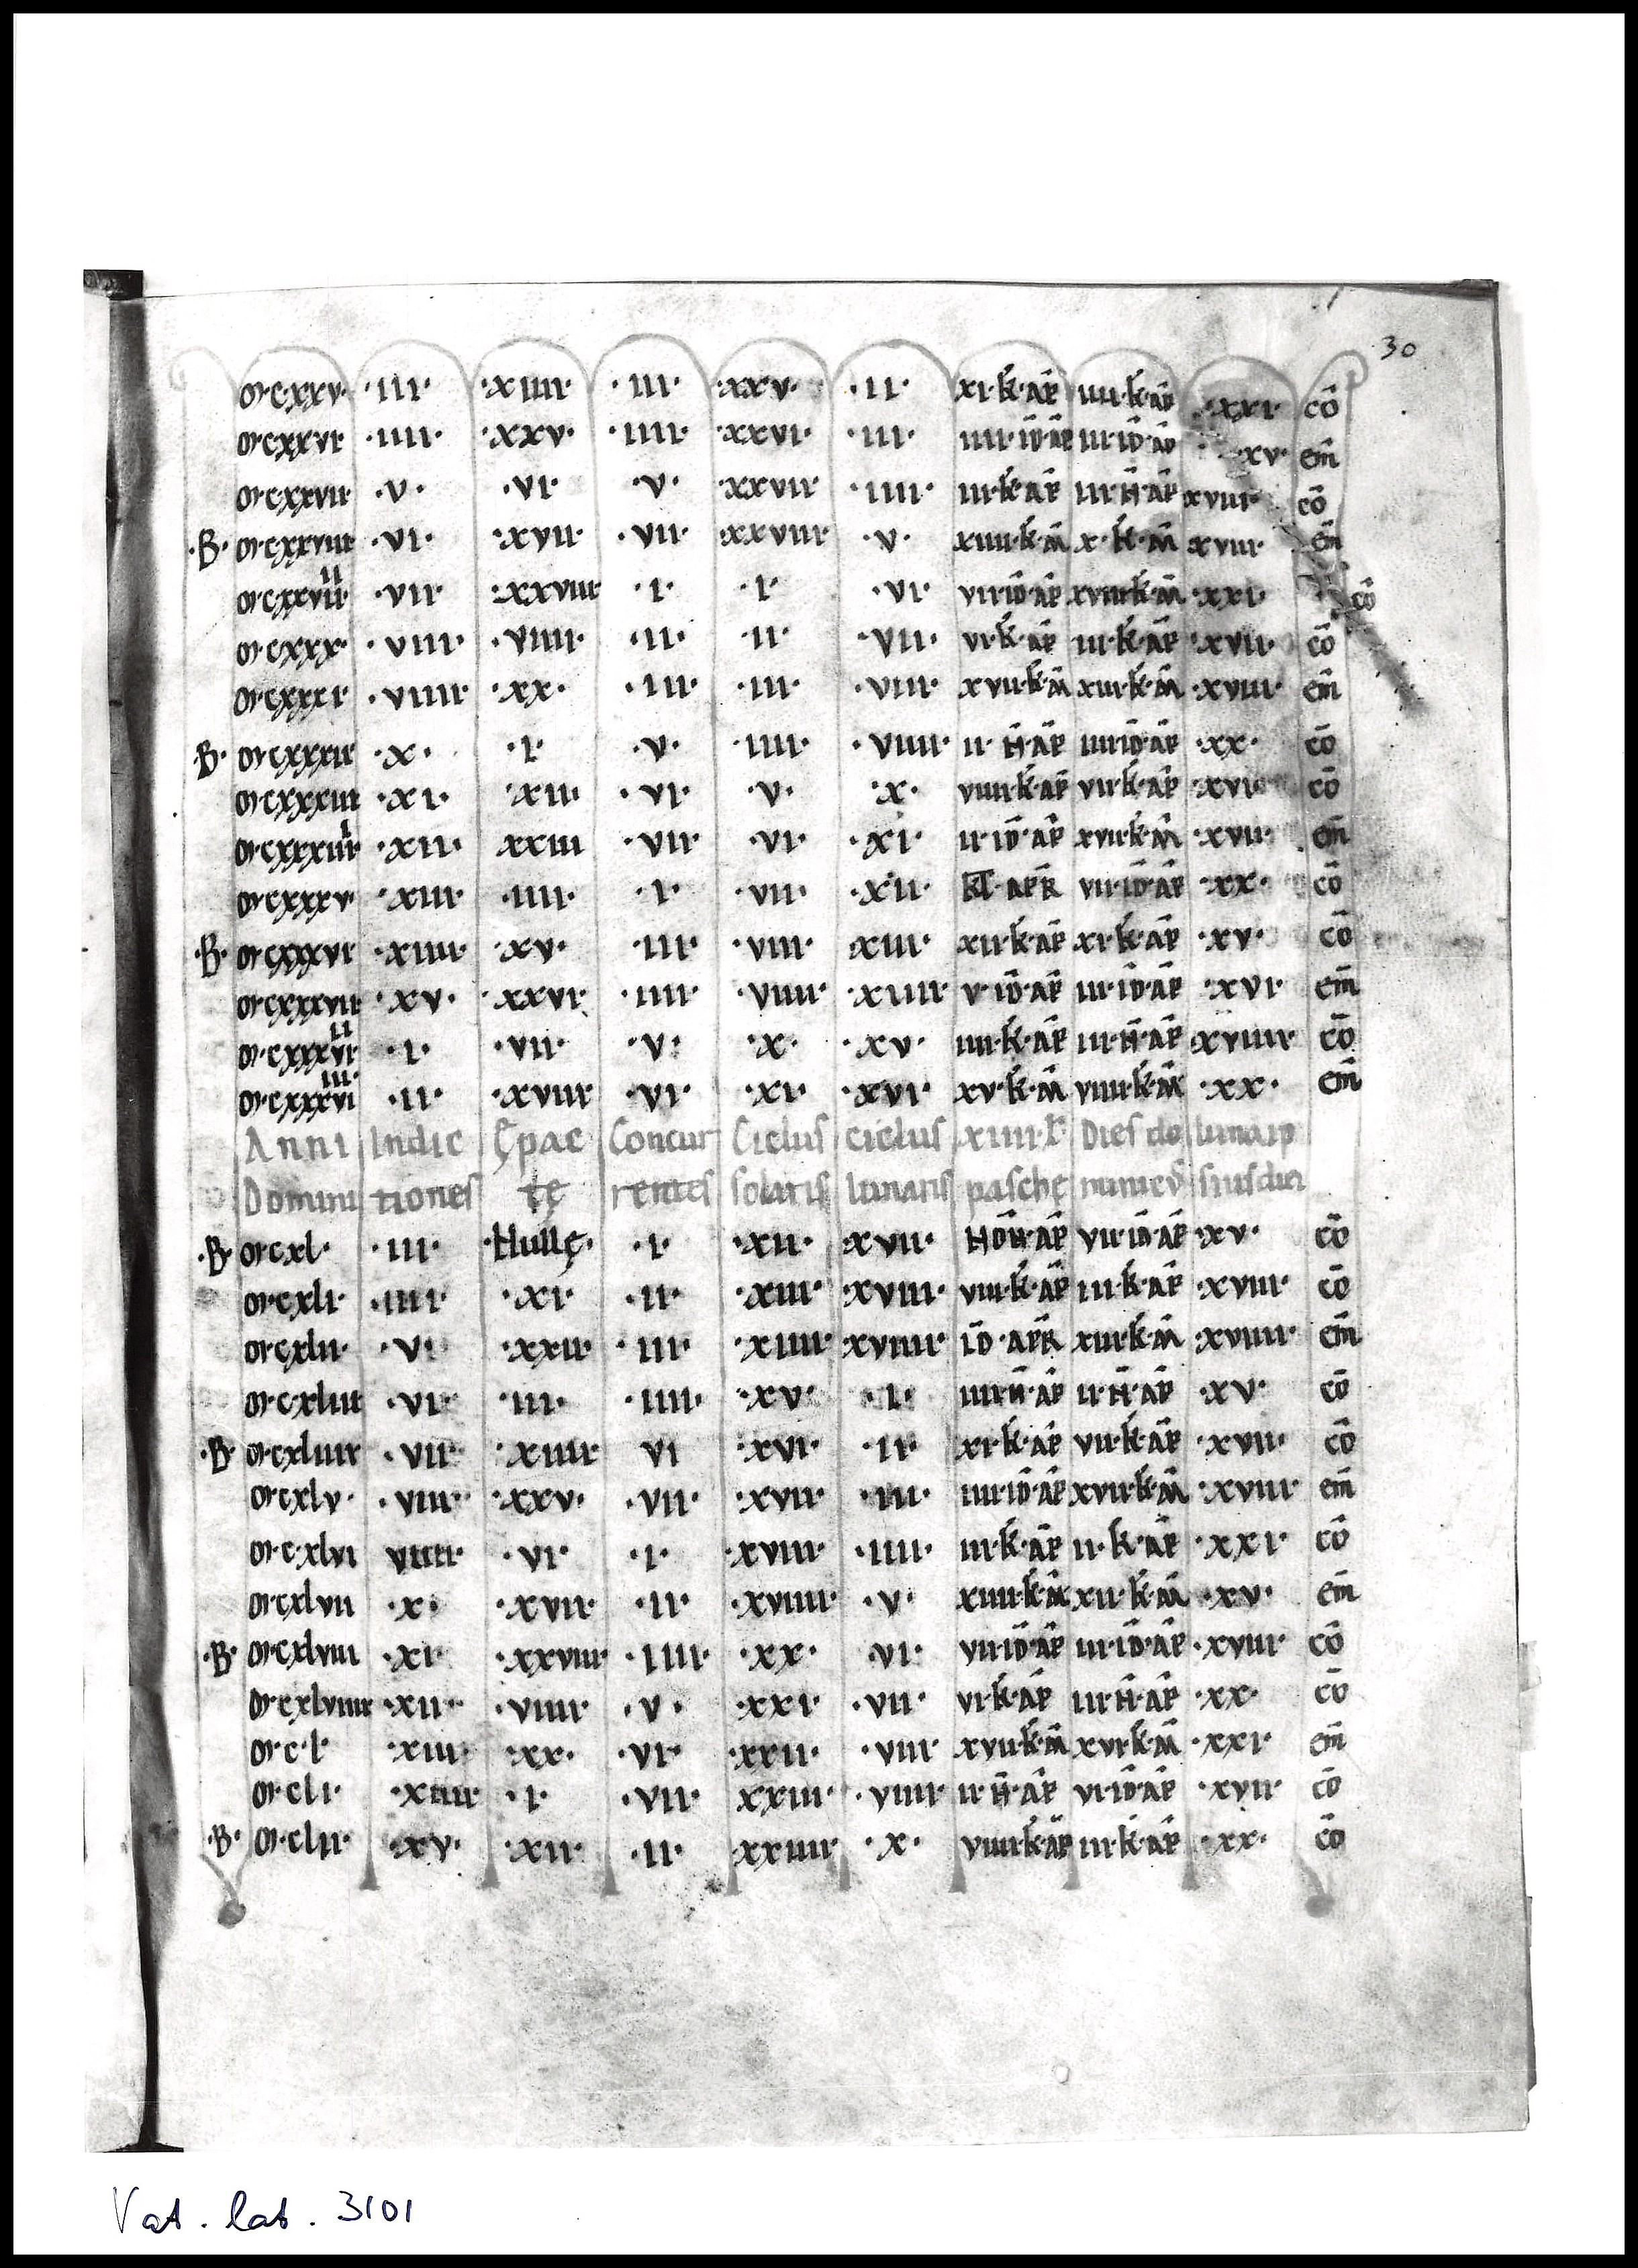 30
M·cxxv· ·III· ·xIIII· ·III· ·xxv· ·II· xI·k·ap̄ IIII·k·ap̄ ·xxI· cō
M·cxxvI ·IIII· ·xxv· ·IIII· ·xxvI· ·III· IIII·id̄·ap̄ III·id̄·ap̄ ·xv· em̄
M·cxxvII ·v· ·vI· ·v· ·xxvII· ·IIII· III·k·ap̄ III·n̄·ap̄ xvIIII· cō
·B· M·cxxvIII ·vI· ·xvII· ·vII· ·xxvIII· ·v· xIIII·k·m̄ x·k·m̄ xvIII· em̄
M·cxxvII II ·vII· ·xxvIII· ·I· ·I· ·vI· vII·id̄·ap̄ xvIII·k·m̄ ·xxI· cō
M·cxxx· ·vIII· ·vIIII· ·II· ·II· ·vII· vI·k·ap̄ III·k·ap̄ ·xvII· cō
M·cxxxI ·vIIII· ·xx· ·III· ·III· ·vIII· xvII·k·m̄ xIII·k·m̄ ·xvIII· em̄
·B· M·cxxxII ·x· ·I· ·v· ·IIII· ·vIIII· II·n̄·ap̄ IIII·id̄·ap̄ ·xx· cō
M·cxxxIII ·xI· ·xII· ·vI· ·v· ·x· vIIII·k·ap̄ vII·k·ap̄ ·xvI· cō
M·cxxxIII I ·xII· xxIII ·vII· ·vI· ·xI· II·id̄·ap̄ xvII·k·m̄ ·xvII· em̄
M·cxxxv· ·xIII· ·IIII· ·I· ·vII· ·xII· kl̄·apr̄ vII·id̄·ap̄ ·xx· cō
·B· M·cxxxvI ·xIIII· ·xv· ·III· ·vIII· xIII· xII·k·ap̄ xI·k·ap̄ ·xv· cō
M·cxxxvII ·xv· ·xxvI· ·IIII· ·vIIII· ·xIIII· v·id̄·ap̄ III·id̄·ap̄ ·xvI· em̄
M·cxxxvI II ·I· ·vII· ·v· ·x· ·xv· IIII·k·ap̄ III·n̄·ap̄ xvIIII· cō
M·cxxxvI III ·II· ·xvIII· ·vI· ·xI· ·xvI· xv·k·m̄ vIIII·k·m̄ ·xx· em̄
Anni Indic Ępac Concur Ciclus ciclus xIIII·l̄ Dies do luna ip
Domini tiones tę rentes solaris lunaris paschę minicꝰ sius diei
·B· M·cxl· ·III· ·Nullę· ·I· ·xII· ·xvII· Non̄·ap̄ vII·id̄·ap̄ ·xv· cō
M·cxlI· ·IIII· ·xI· ·II· ·xIII· ·xvIII· vIII·k·ap̄ III·k·ap̄ ·xvIII· cō
M·cxlII· ·v· ·xxII· ·III· ·xIIII· xvIIII· id̄·apr̄ xII·k·m̄ ·xvIIII· em̄
M·cxlIII ·vI· ·III· ·IIII· ·xv· ·I· IIII·n̄·ap̄ II·n̄·ap̄ ·xv· cō
·B· M·cxlIIII ·vII· ·xIIII· vI ·xvI· ·II· xI·k·ap̄ vII·k·ap̄ ·xvII· cō
M·cxlv· ·vIII· ·xxv· ·vII· ·xvII· ·III· IIII·id̄·ap̄ xvII·k·m̄ ·xvIII· em̄
M·cxlvI vIIII· ·vI· ·I· ·xvIII· ·IIII· III·k·ap̄ II·k·ap̄ ·xxI· cō
M·cxlvII ·x· ·xvII· ·II· ·xvIIII· ·v· xIIII·k·m̄ xII·k·m̄ ·xv· em̄
·B· M·cxlvIII ·xI· ·xxvIII· ·IIII· ·xx· ·vI· vII·id̄·ap̄ III·id̄·ap̄ ·xvIII· cō
M·cxlvIIII ·xII· ·vIIII· ·v· ·xxI· ·vII· vI·k·ap̄ III·n̄·ap̄ ·xx· cō
M·c·l· ·xIII· ·xx· ·vI· ·xxII· ·vIII· xvII·k·m̄ xvI·k·m̄ ·xxI· em̄
M·clI· ·xIIII· ·I· ·vII· xxIII· ·vIIII· II·n̄·ap̄ vI·id̄·ap̄ ·xvII· cō
·B· M·clII· ·xv· ·xII· ·II· ·xxIIII· ·x· vIIII·k·ap̄ III·k·ap̄ ·xx· cō
Vat. lat. 3101